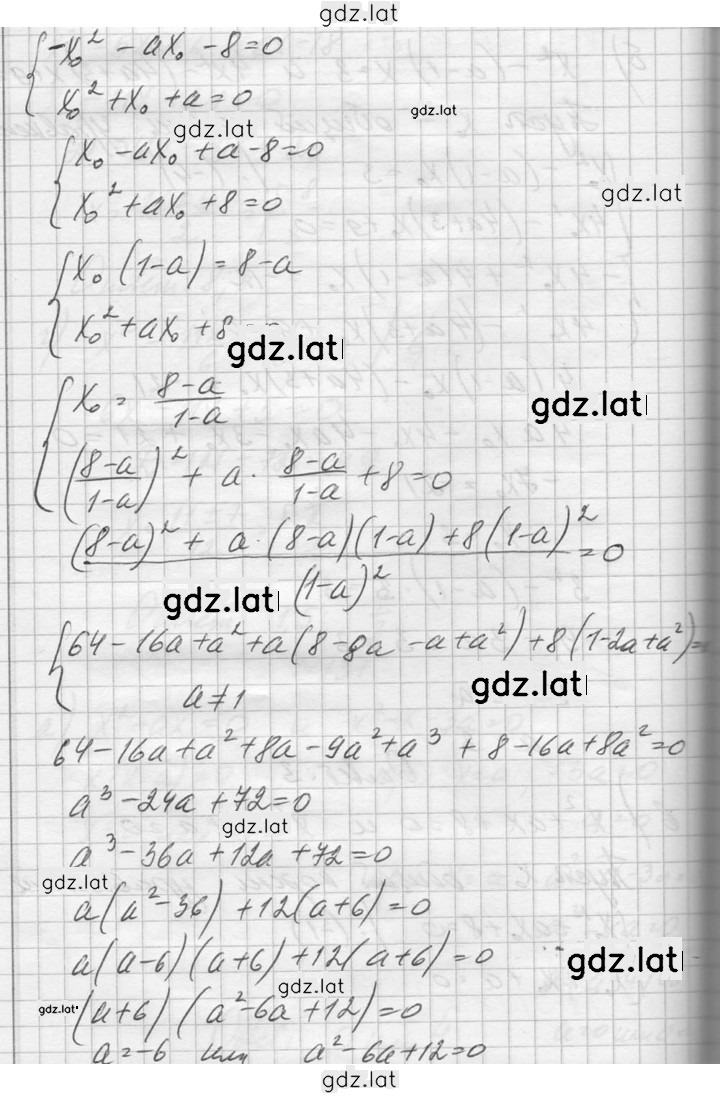 gdz.lat
{ -x₀² - ax₀ - 8 = 0
x₀² + x₀ + a = 0
gdz.lat
gdz.lat
{ x₀ - ax₀ + a - 8 = 0
x₀² + ax₀ + 8 = 0
gdz.lat
{ x₀ (1-a) = 8-a
x₀² + ax₀ + 8
gdz.lat
{ x₀ = (8-a)/(1-a)
gdz.lat
((8-a)/(1-a))² + a · (8-a)/(1-a) + 8 = 0
((8-a)² + a·(8-a)(1-a) + 8(1-a)²)/(1-a)² = 0
gdz.lat
{ 64 - 16a + a² + a(8 - 8a - a + a²) + 8(1-2a+a²) =
a ≠ 1
gdz.lat
64 - 16a + a² + 8a - 9a² + a³ + 8 - 16a + 8a² = 0
a³ - 24a + 72 = 0
gdz.lat
a³ - 36a + 12a + 72 = 0
gdz.lat
a(a² - 36) + 12(a+6) = 0
a(a-6)(a+6) + 12(a+6) = 0
gdz.lat
gdz.lat
gdz.lat
(a+6)(a² - 6a + 12) = 0
a = -6 или a² - 6a + 12 = 0
gdz.lat